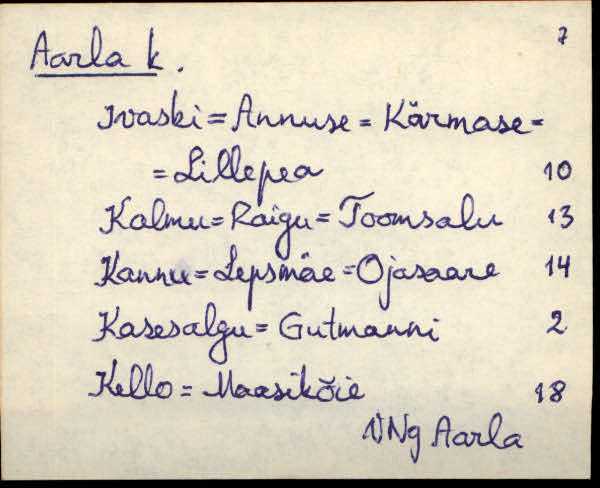 Aarla k. 7
Ivaski = Annuse = Kärmase =
= Lillepea 10
Kalmu = Raigu = Toomsalu 13
Kannu = Lepsmäe = Ojasaare 14
Kasesalgu = Gutmanni 2
Kello = Maasikõie 18
VNg Aarla